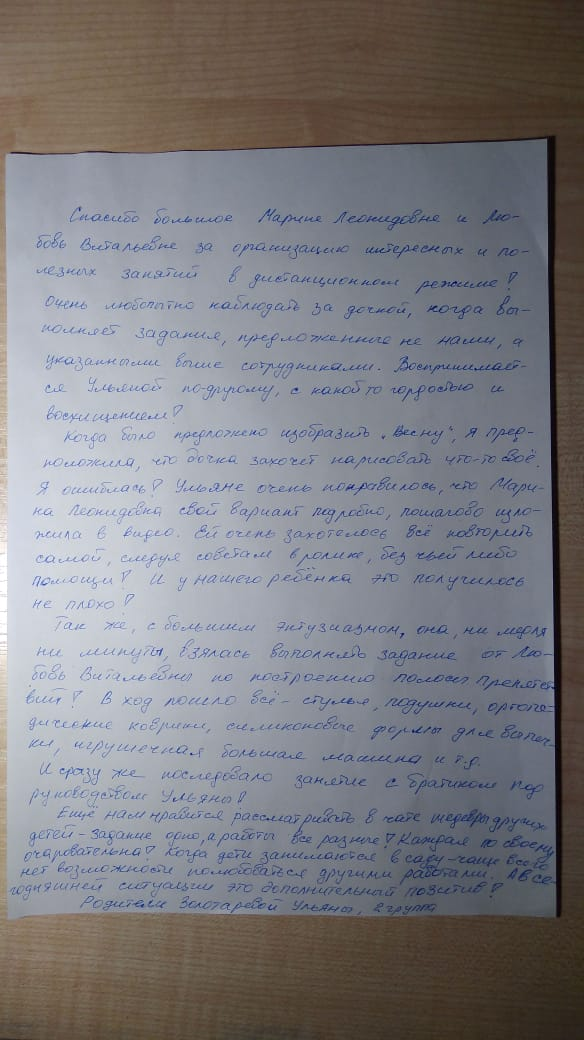 Спасибо большое Марине Леонидовне и Лю-
бовь Витальевне за организацию интересных и по-
лезных занятий в дистанционном режиме!
Очень любопытно наблюдать за дочкой, когда вы-
полняет задания, предложенные не нами, а
указанными выше сотрудниками. Воспринимает-
ся Ульяной по-другому, с какой то гордостью и
восхищением!
Когда было предложено изобразить „Весну", я пред-
положила, что дочка захочет нарисовать что-то своё.
Я ошиблась! Ульяне очень понравилось, что Мари-
на Леонидовна свой вариант подробно, пошагово изло-
жила в видео. Ей очень захотелось всё повторить
самой, следуя советам в ролике, без чьей либо
помощи! И у нашего ребёнка это получилось
не плохо!
Так же, с большим энтузиазмом, она, ни медля
ни минуты, взялась выполнять задание от Лю-
бовь Витальевны по построению полосы препятст-
вий! В ход пошло всё - стулья, подушки, ортопе-
дические коврики, силиконовые формы для выпеч-
ки, игрушечная большая машина и т.д.
И сразу же последовало занятие с братиком под
руководством Ульяны!
Ещё нам нравится рассматривать в чате шедевры других
детей - задание одно, а работы все разные! Каждая по своему
очаровательна! Когда дети занимаются в саду - чаще всего
нет возможности полюбоваться другими работами. А в се-
годняшней ситуации это дополнительный позитив!
Родители Золотаревой Ульяны, 2 группа